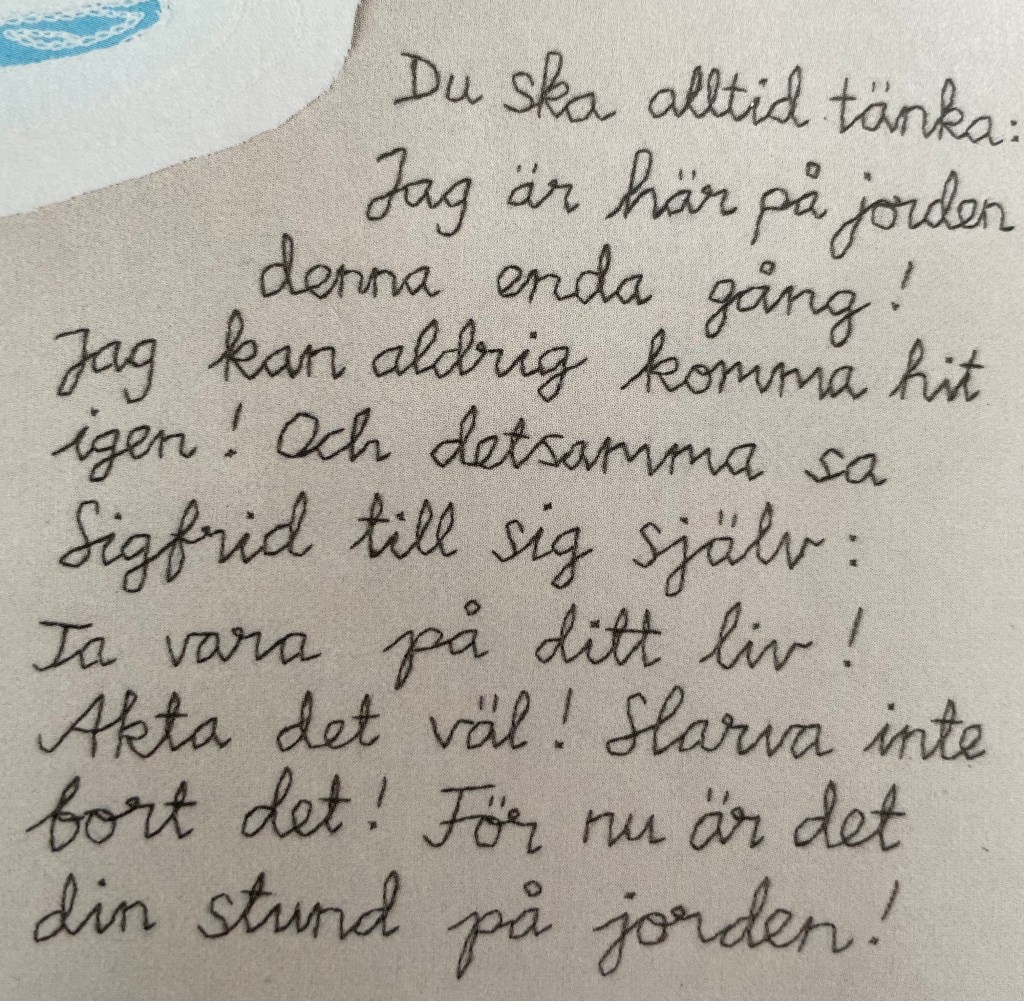 Du ska alltid tänka:
Jag är här på jorden
denna enda gång!
Jag kan aldrig komma hit
igen! Och detsamma sa
Sigfrid till sig själv:
Ta vara på ditt liv!
Akta det väl! Slarva inte
bort det! För nu är det
din stund på jorden!